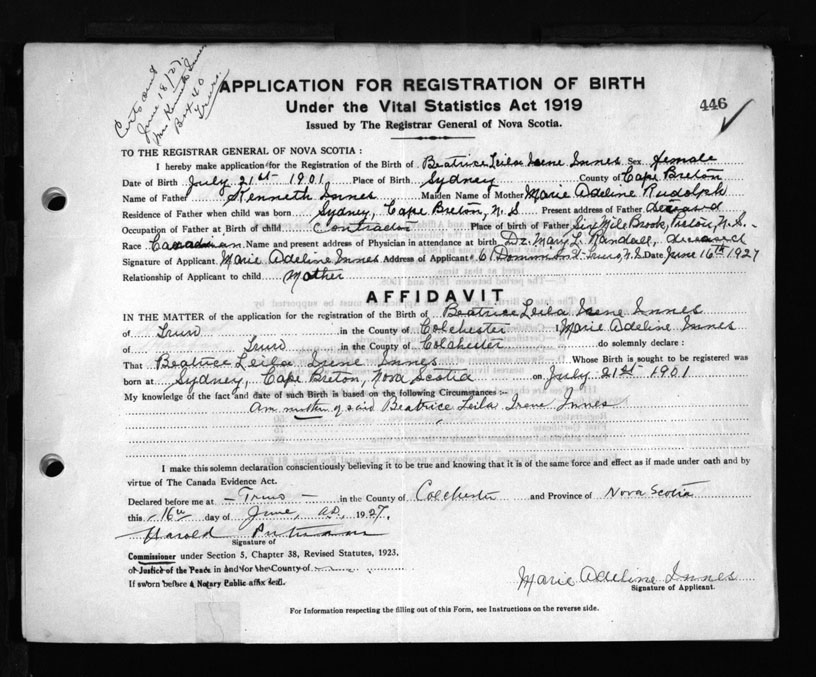 Certs sent
June 18/27
Mrs Kenneth Innes
Box 40
Truro
APPLICATION FOR REGISTRATION OF BIRTH
Under the Vital Statistics Act 1919
446
Issued by The Registrar General of Nova Scotia.
TO THE REGISTRAR GENERAL OF NOVA SCOTIA :
I hereby make application for the Registration of the Birth of Beatrice Leila Irene Innes Sex female
Date of Birth July 21st 1901 Place of Birth Sydney County of Cape Breton
Name of Father Kenneth Innes Maiden Name of Mother Marie Adeline Rudolph
Residence of Father when child was born Sydney, Cape Breton, N.S Present address of Father deceased
Occupation of Father at Birth of child Contractor Place of birth of Father Six Mile Brook, Pictou, N.S.
Race Canadian Name and present address of Physician in attendance at birth Dr. Mary L. Randall, deceased
Signature of Applicant Marie Adeline Innes Address of Applicant 61 Dominion St. Truro, N.S. Date June 16th 1927
Relationship of Applicant to child Mother
AFFIDAVIT
IN THE MATTER of the application for the registration of the Birth of Beatrice Leila Irene Innes
of Truro in the County of Colchester I Marie Adeline Innes
of Truro in the County of Colchester do solemnly declare :
That Beatrice Leila Irene Innes Whose Birth is sought to be registered was
born at Sydney, Cape Breton, Nova Scotia on July 21st 1901
My knowledge of the fact and date of such Birth is based on the following Circumstances :-
Am mother of said Beatrice Leila Irene Innes
I make this solemn declaration conscientiously believing it to be true and knowing that it is of the same force and effect as if made under oath and by
virtue of The Canada Evidence Act.
Declared before me at - Truro - in the County of Colchester and Province of Nova Scotia
this 16th day of June, A.D. 1927.
Harold Putnam
Signature of
Commissioner under Section 5, Chapter 38, Revised Statutes, 1923.
of Justice of the Peace in and for the County of
If sworn before a Notary Public affix seal.
Marie Adeline Innes
Signature of Applicant.
For Information respecting the filling out of this Form, see Instructions on the reverse side.